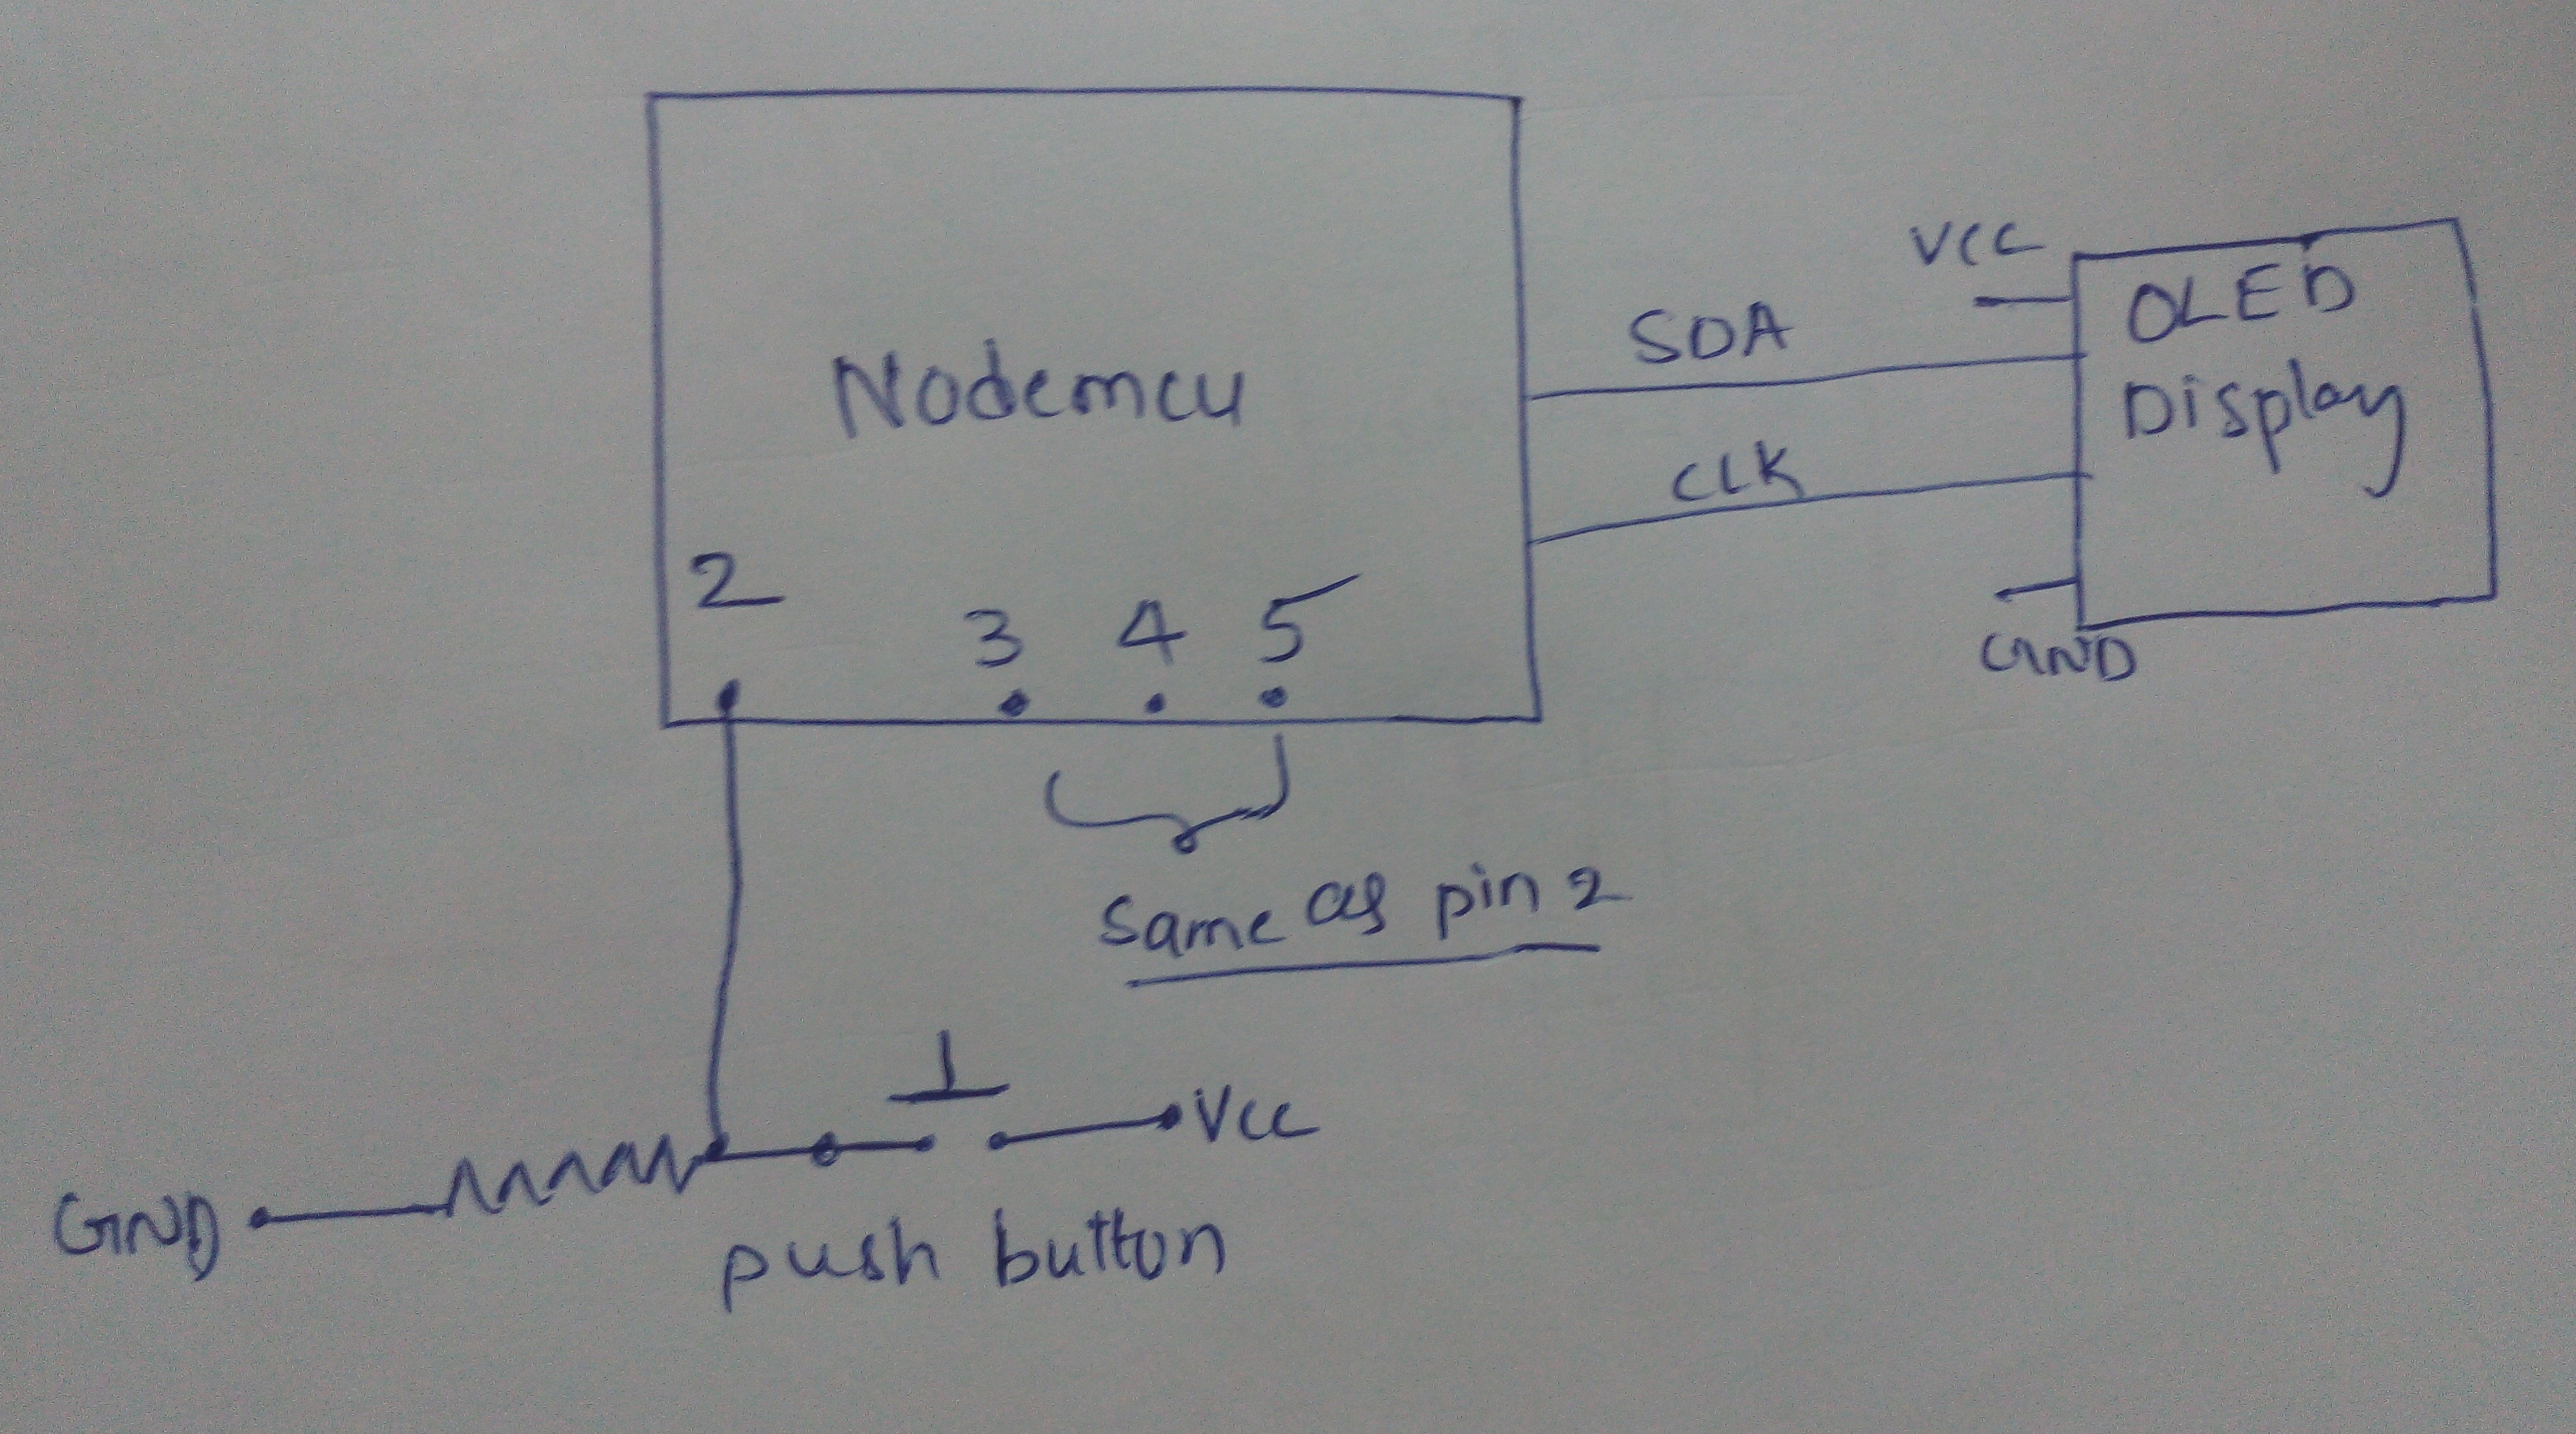 Nodemcu
2
3 4 5
same as pin 2
SDA
CLK
VCC
OLED
Display
GND
GND
Vcc
push button